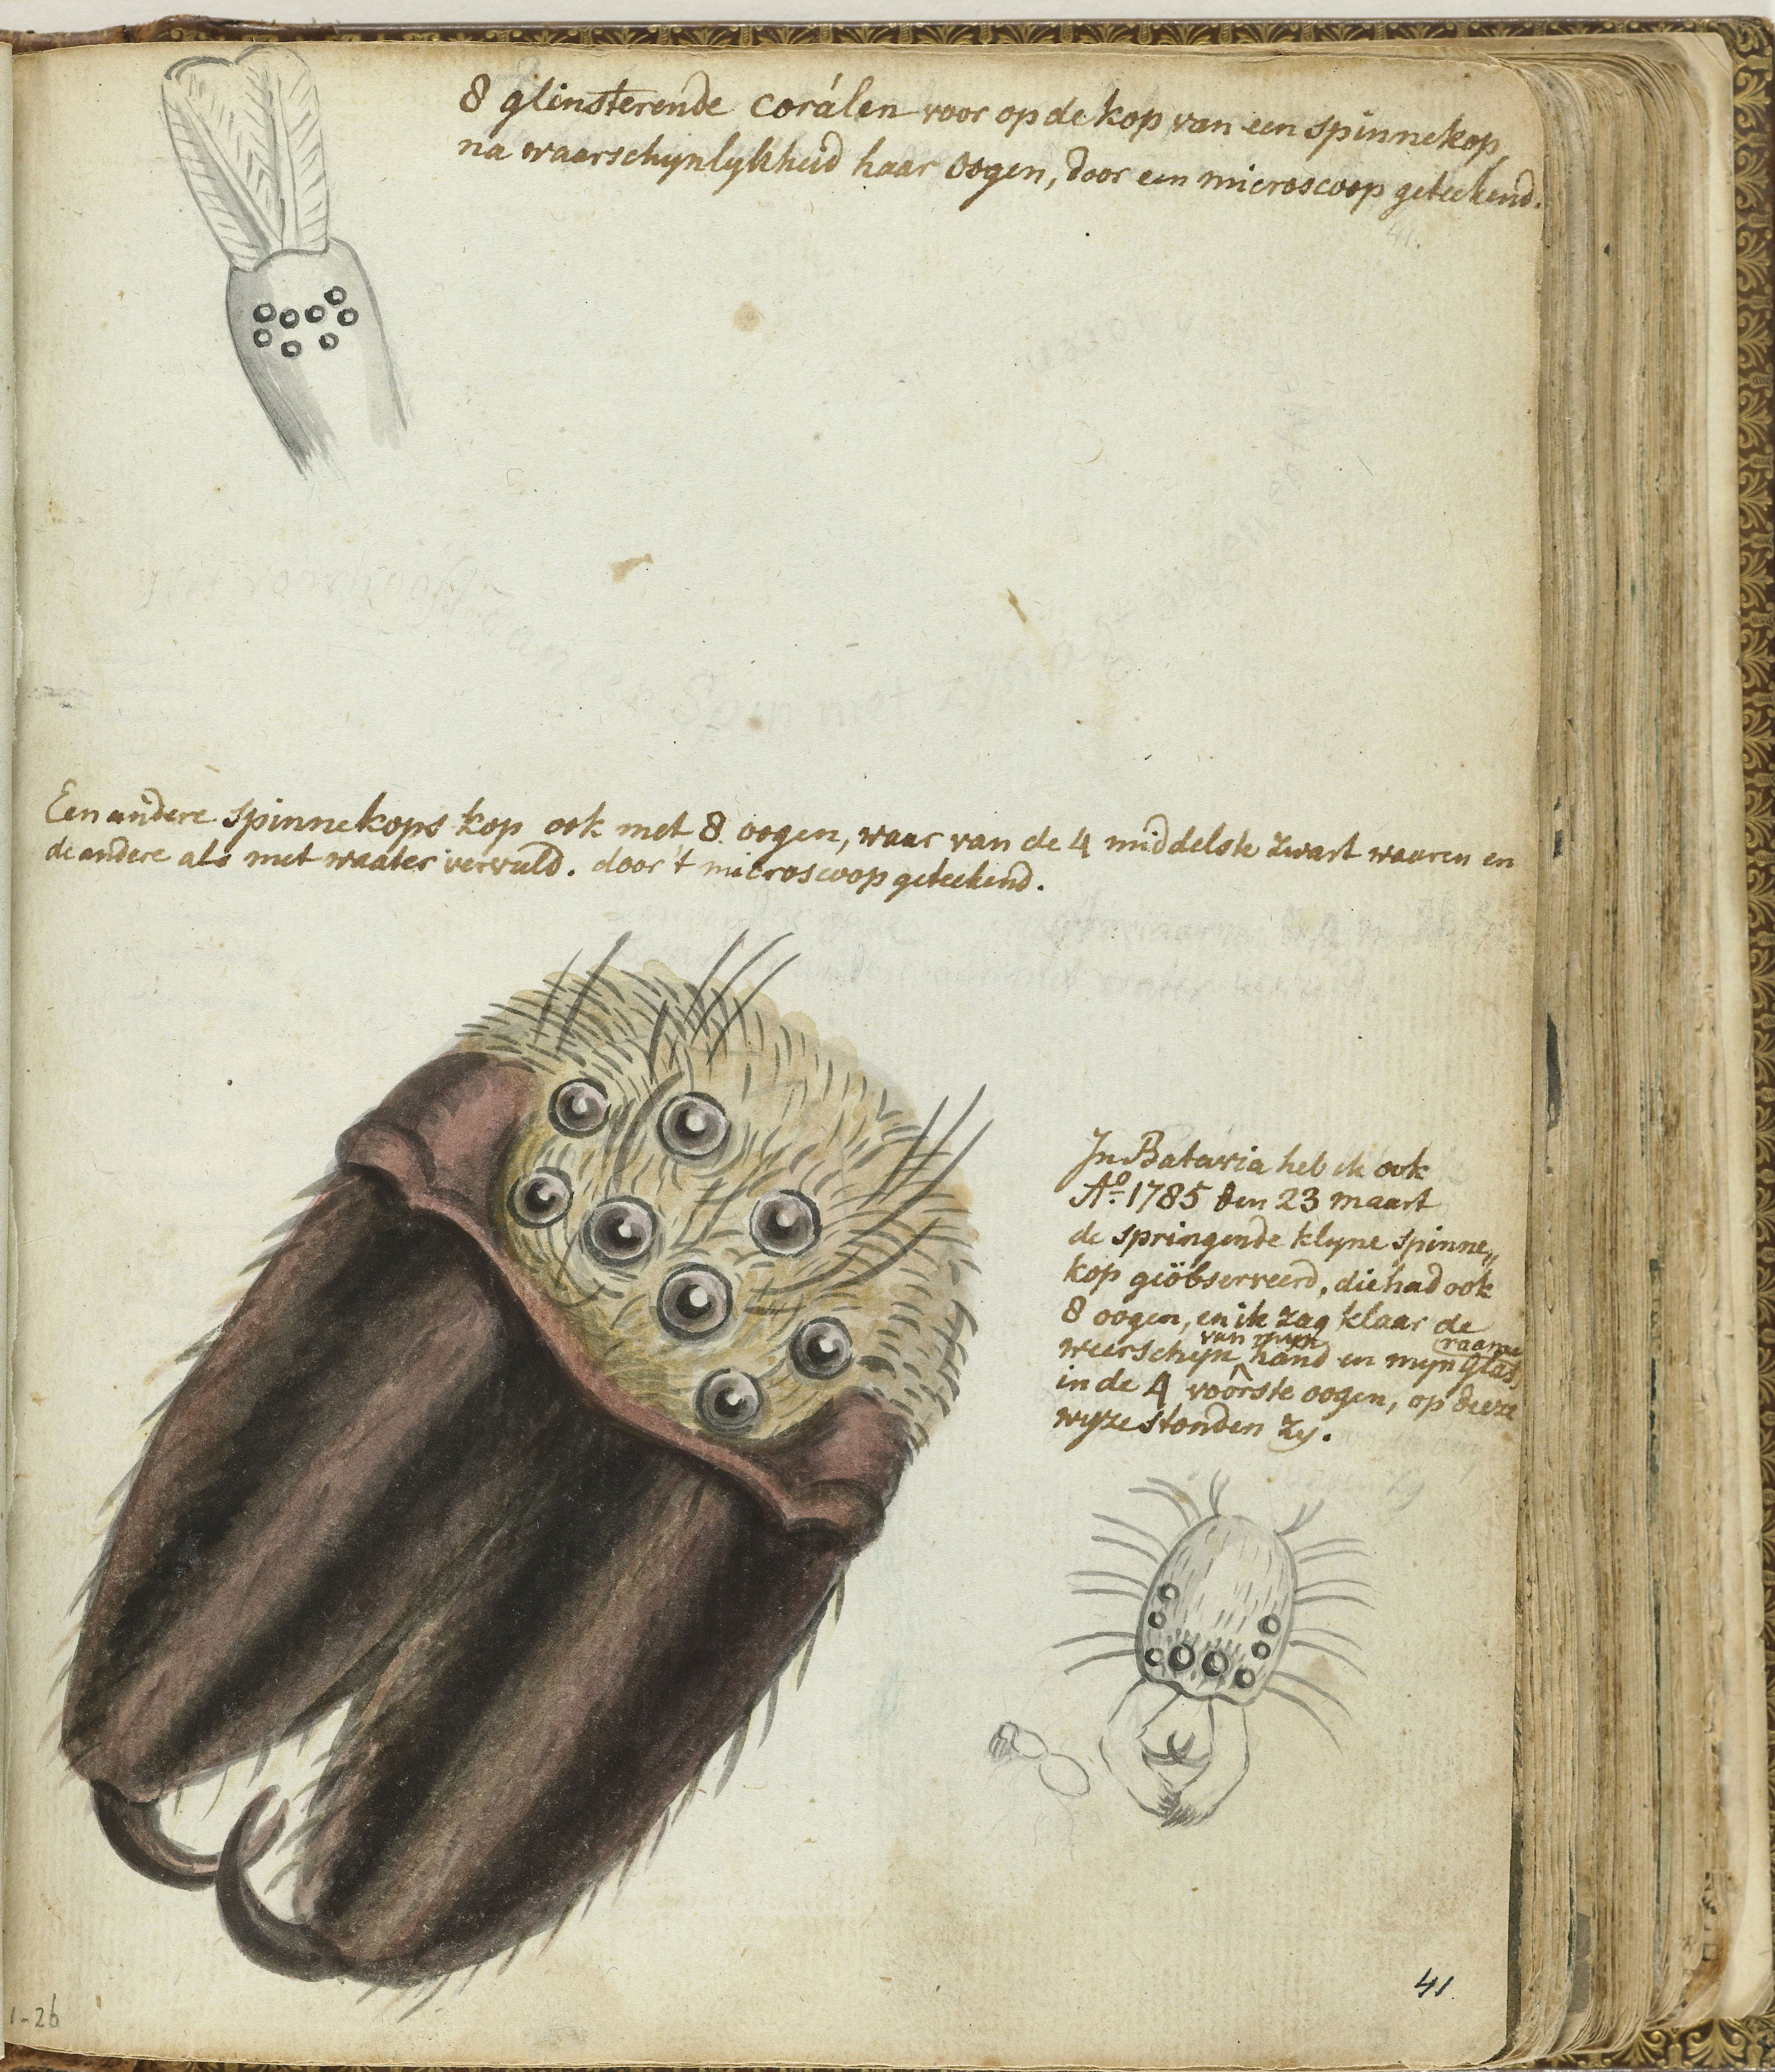 8 glinsterende corálen voor op de kop van een spinnekop,
na waarschynlykheid haar oogen, door een microscoop geteekend.
41.
Een andere spinnekops kop ook met 8 oogen, waar van de 4 middelste zwart waaren en
de andere als met waater vervuld. door 't microscoop geteekend.
In Batavia heb ik ook
Aº 1785 den 23 maart
de springende klyne spinne„
kop geöbserveerd, die had ook
8 oogen, en ik zag klaar de
van myn raame
weerschyn ^ hand en myn glas
in de 4 voorste oogen, op deeze
wyze stonden zy.
41.
1-26